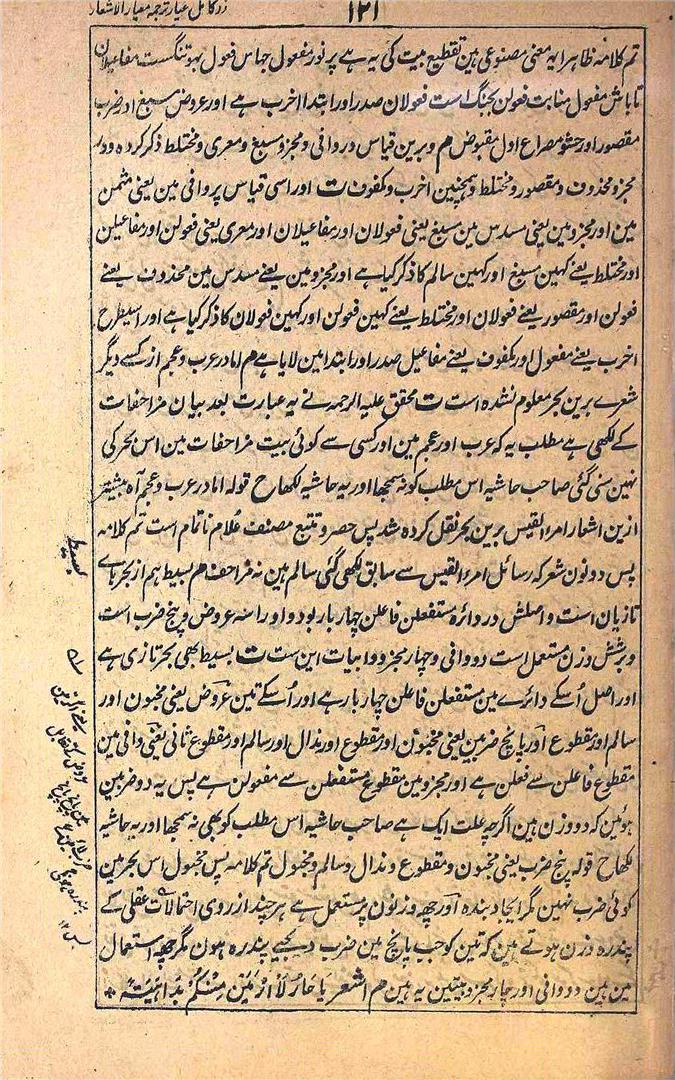 زر کامل عیار ترجمہ معیار الاشعار
۱۲۱
تم کلامہ ظاہرا یہ معنی مصنوعی ہین تقطیع بیت کی یہ ہے پر نور مفعول جہاس فعول بہو تنگست مفاعیلان
تا باش مفعول منابت فعولن بجنگ است فعولان صدر اور ابتدا اخرب ہے اور عروض مسبغ اور ضرب
مقصور اور حشو مصراع اول مقبوض ہم و برین قیاس در وافی و مجزو مسبغ و معری و مختلط ذکر کردہ و در
مجزو محذوف و مقصور و مختلط و ہمچنین اخرب و مکفوف ت اور اسی قیاس پر وافی مین یعنی مثمن
مین اور مجزو مین یعنی مسدس مین مسبغ یعنی فعولان اور مفاعیلان اور معری یعنی فعولن اور مفاعیلن
اور مختلط یعنے کہین مسبغ اور کہین سالم کا ذکر کیا ہے اور مجزو مین یعنے مسدس مین محذوف یعنے
فعولن اور مقصور یعنے فعولان اور مختلط یعنے کہین فعولن اور کہین فعولان کا ذکر کیا ہے اور اسیطرح
اخرب یعنے مفعول اور مکفوف یعنے مفاعیل صدر اور ابتدا مین لایا ہے ہم اما در عرب و عجم از کسے دیگر
شعرے برین بحر معلوم نشدہ است ت محقق علیہ الرحمہ نے یہ عبارت بعد بیان مزاحفات
کے لکھی ہے مطلب یہ کہ عرب اور عجم مین اور کسی سے کوئی بیت مزاحفات مین اس بحر کی
نہین سنی گئی صاحب حاشیہ اس مطلب کو نہ سمجھا اور یہ حاشیہ لکھا ح قولہ اما در عرب و عجم آہ بیشتر
ازین اشعار امرء القیس برین بحر نقل کردہ شد پس حصر و تتبع مصنف علام ناتمام است تم کلامہ
پس دونون شعر کہ رسائل امرء القیس سے سابق لکھی گئی سالم ہین نہ مزاحف ہم بسیط ہم از بحرہای
تازیان است و اصلش در دائرہ مستفعلن فاعلن چہار بار بود و اورا سہ عروض و پنج ضرب است
و بر شش وزن مستعمل است دو وافی و چہار مجزو و ابیات این ست ت بسیط بھی بحر تازی ہے
اور اصل اُسکے دائرے مین مستفعلن فاعلن چہار بار ہے اور اُسکے تین عروض یعنی مخبون اور
سالم اور مقطوع اور پانچ ضربین یعنی مخبون اور مقطوع اور مذال اور سالم اور مقطوع ثانی یعنی وافی مین
مقطوع فاعلن سے فعلن ہے اور مجزو مین مقطوع مستفعلن سے مفعولن ہے پس یہ دو ضربین
ہوئین کہ دو وزن ہین اگرچہ علت ایک ہے صاحب حاشیہ اس مطلب کو بھی نہ سمجھا اور یہ حاشیہ
لکھا ح قولہ پنج ضرب یعنی مخبون و مقطوع و مذال و سالم و مخبول تم کلامہ پس مخبول اس بحر مین
کوئی ضرب نہین مگر ایجاد بندہ اور چھہ وزنون پر مستعمل ہے ہر چند از روی احتمالات عقلی کے
پندرہ وزن ہوتے ہین کہ تین کو جب پانچ مین ضرب دیجیے پندرہ ہون مگر چھہ استعمال
مین ہین دو وافی اور چار مجزو بیتین یہ ہین ہم اشعر یَا حَارِ لَا اُرْمَیَنْ مِنْکُمْ بِدَاہِیَۃٍ *
بسیط